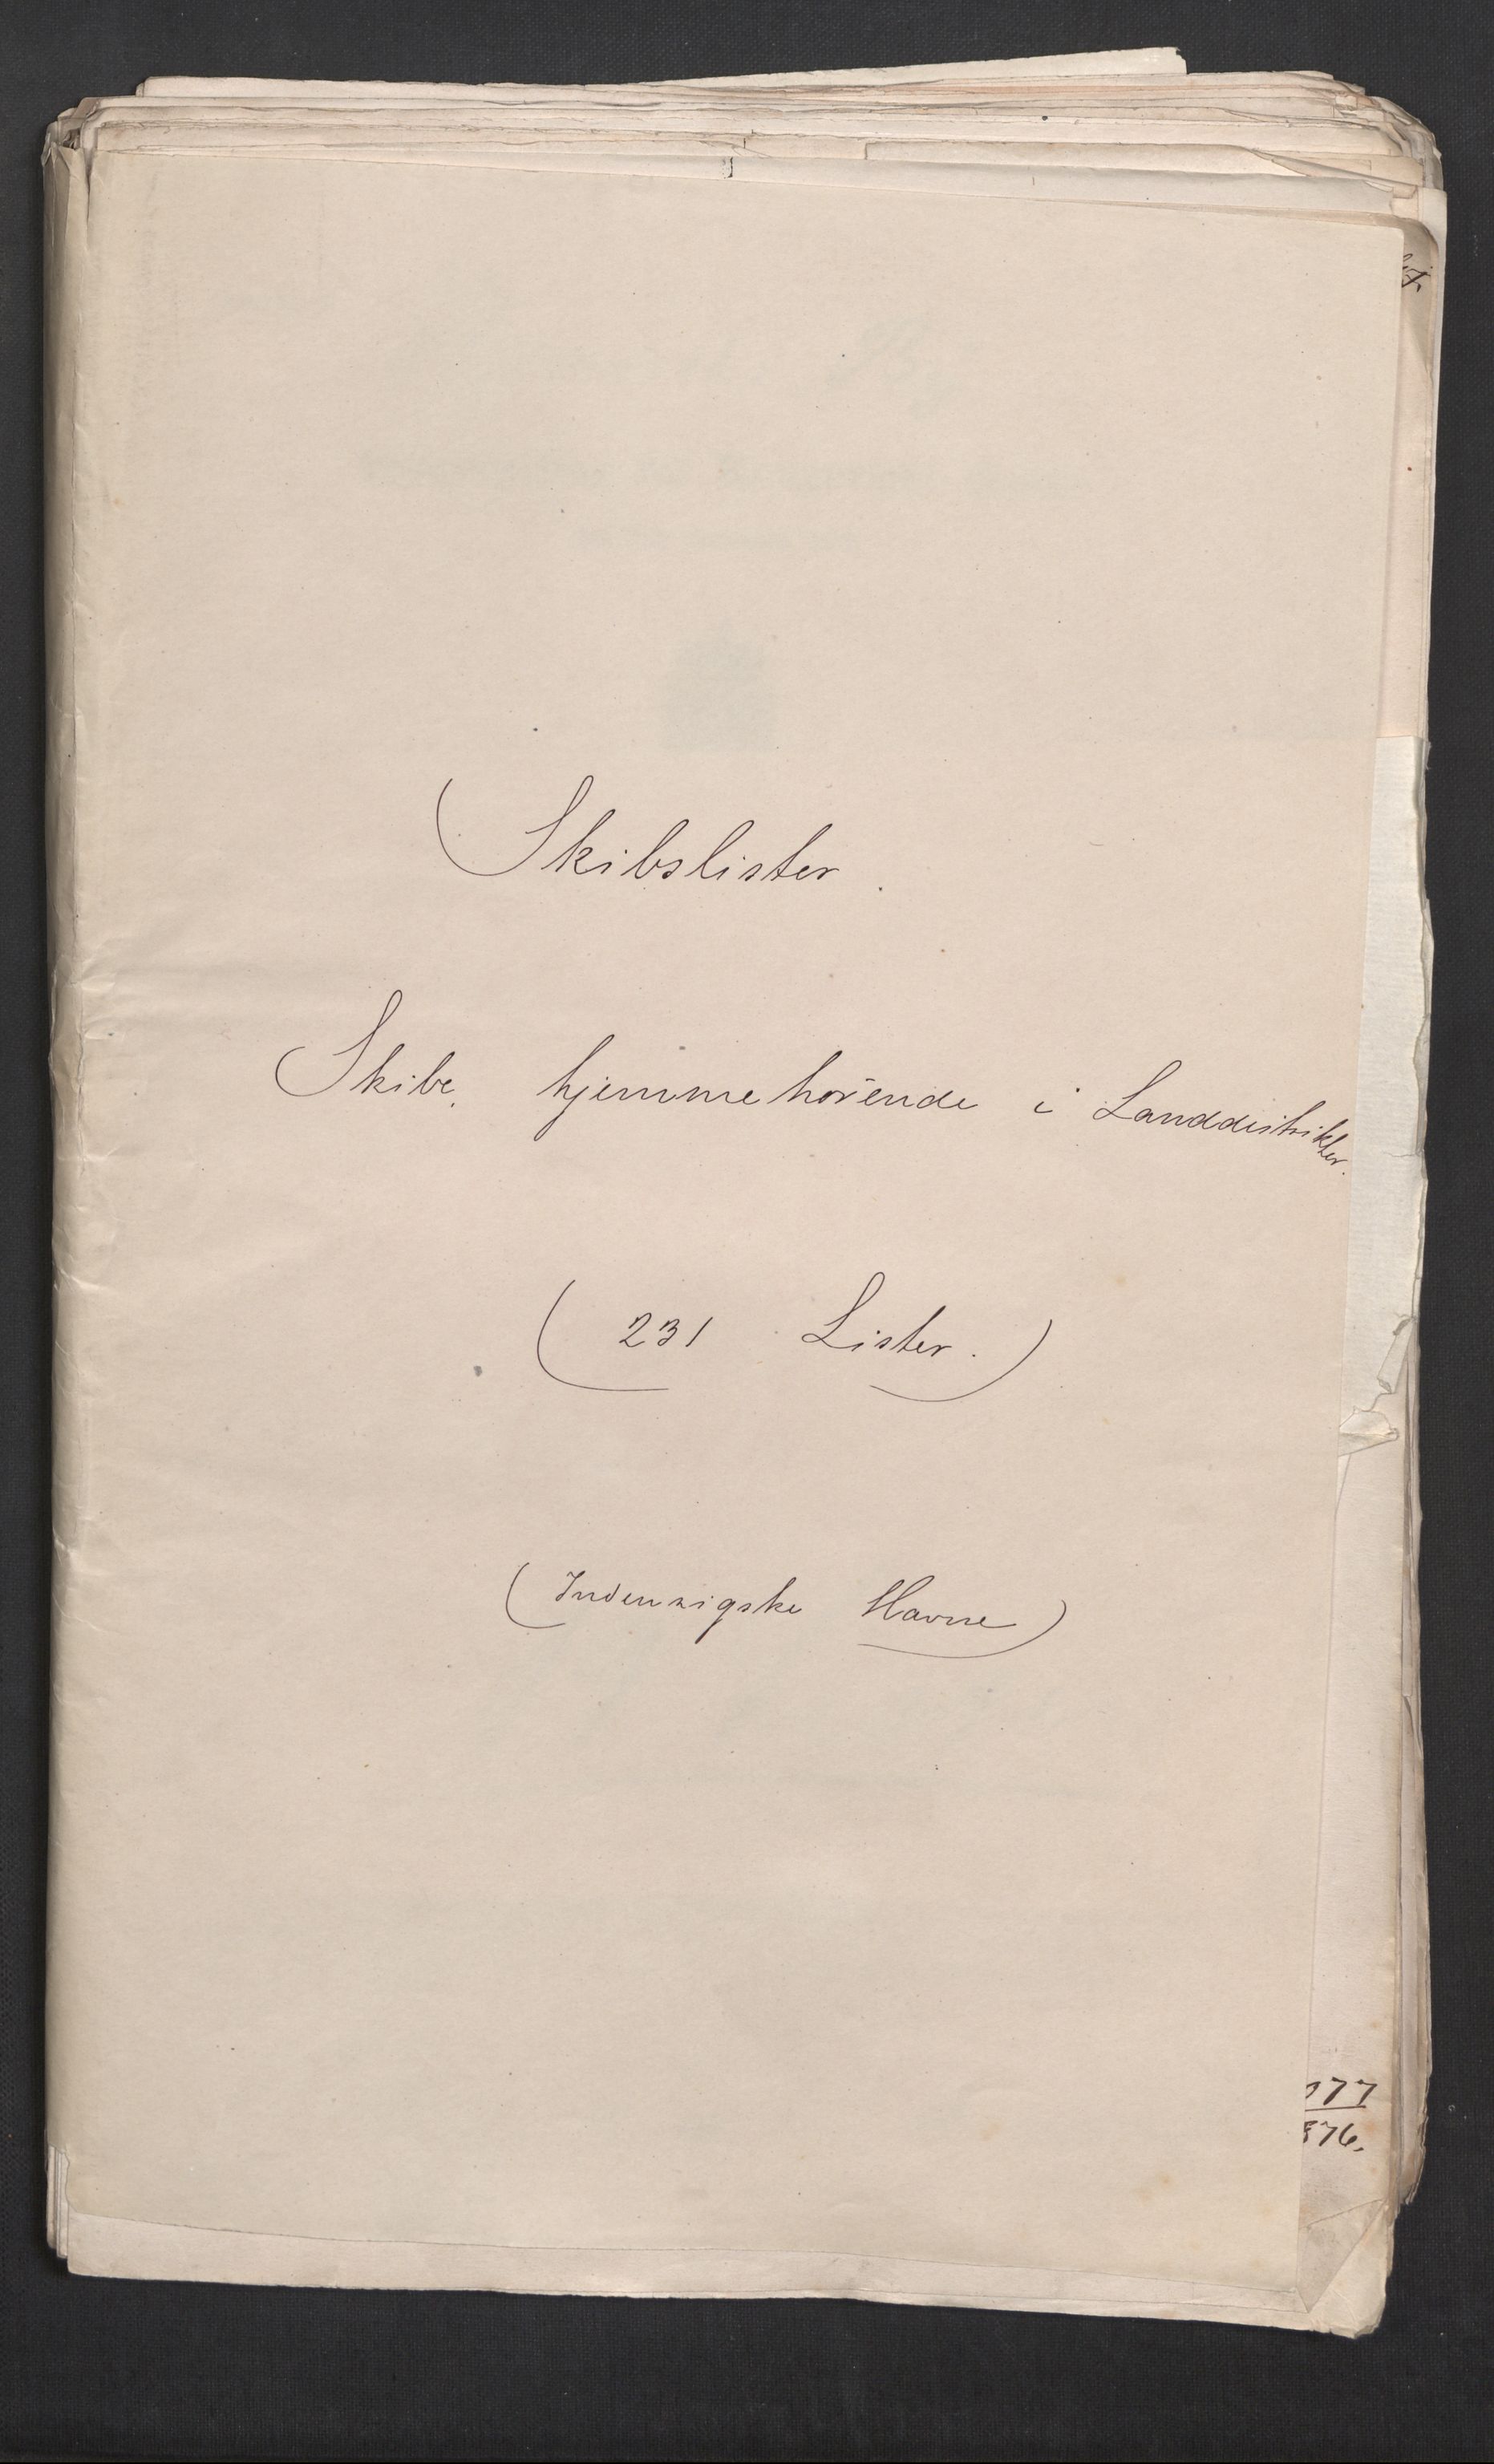 Skibslister.
Skibe, hjemmehörende i Landdistrikter.
(231 Lister.)
(Indenrigske Havne)
77
876.